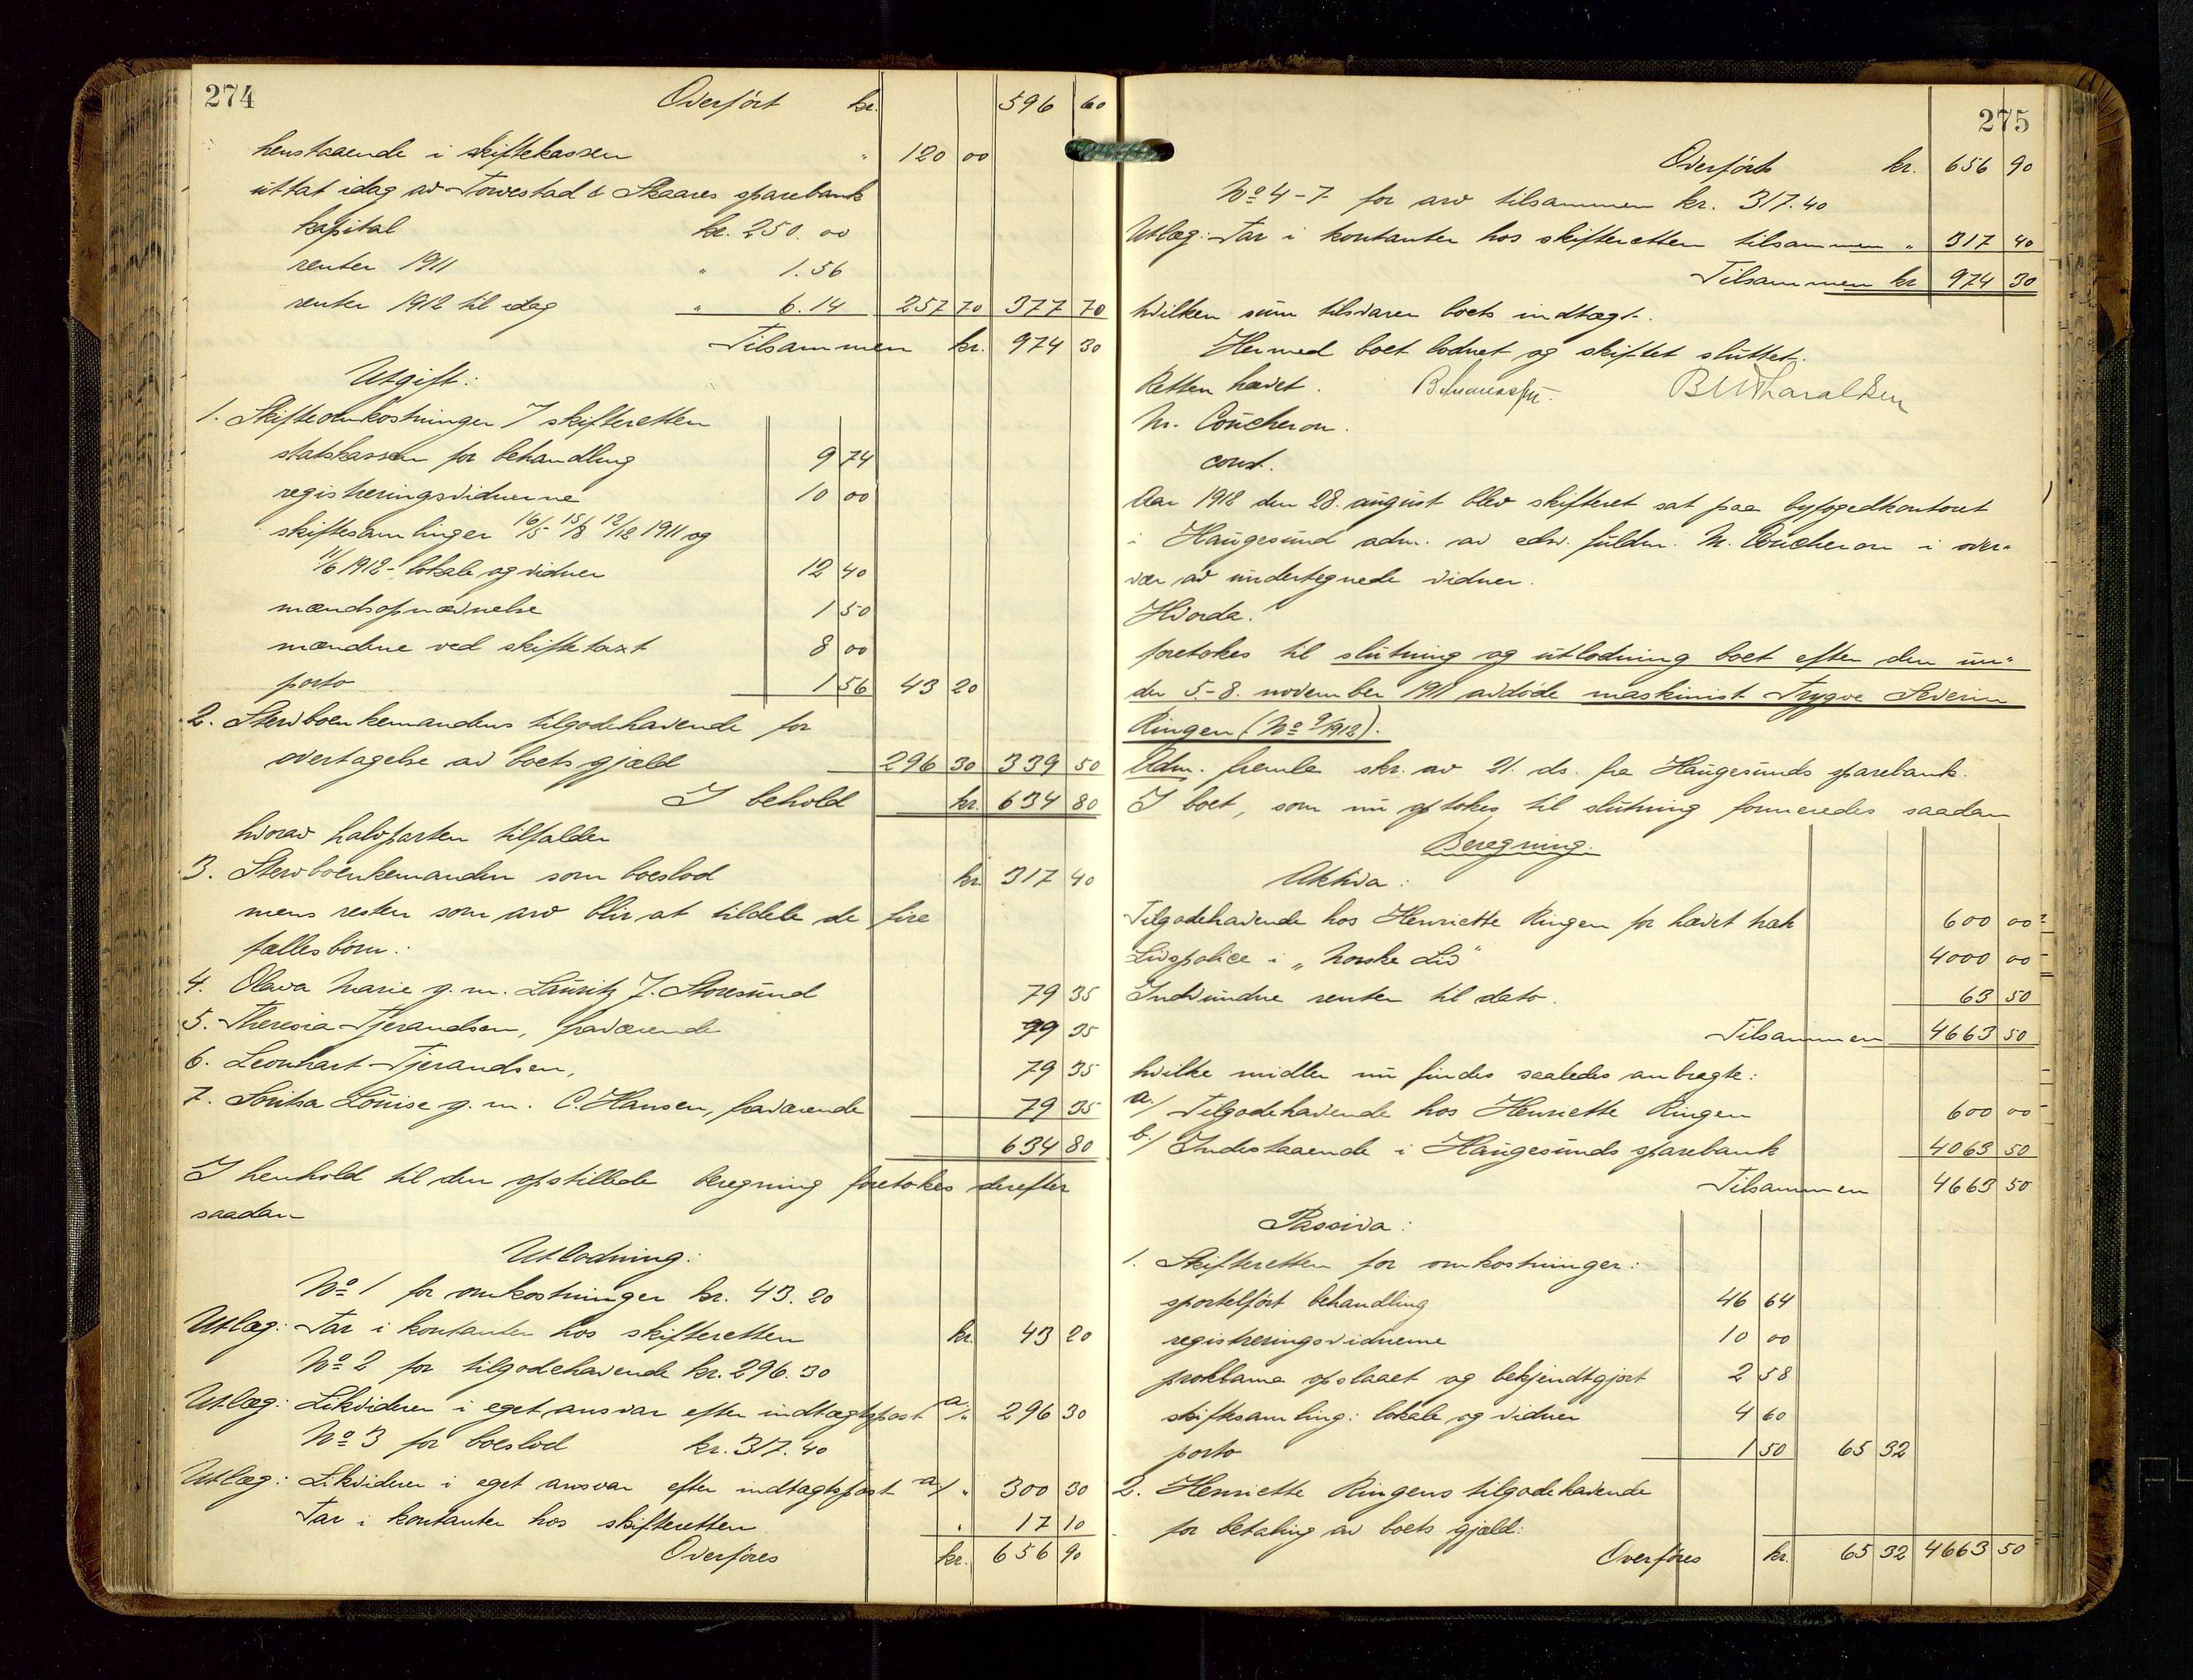 274
Overført kr. 596 60
henstaaende i skiftekassen " 120 00
uttat idag av Torvestad & Skaares sparebank
kapital kr. 250. 00
renter 1911 " 1. 56
renter 1912 til idag " 6. 14 257 70 377 70
Tilsammen kr. 974 30
Utgift:
1. Skifteomkostninger I skifteretten
statskassen for behandling 9 74
registreringsvidnerne 10 00
skiftesamlinger 16/5 15/8 12/12 1911 og
11/6 1912 - lokale og vidner 12 40
mændsopnævnelse 1 50
mændene ved skiftetaxt 8 00
porto 1 56 43 20
2. Stervboenkemandens tilgodehavende for
overtagelse av boets gjæld 296 30 339 50
I behold kr. 634 80
hvorav halvparten tilfalder
3. Stervboenkemanden som boeslod kr 317 40
mens resten som arv blir at tildele de fire
fællesbørn:
4. Olava Marie g. m. Lauritz J. Storesund 79 35
5. Theresia Tjerandsen, fraværende 79 35
6. Leonhart Tjerandsen, 79 35
7. Louise g. m. C. Hansen, fraværende 79 35
634 80
I henhold til den opstillede beregning foretokes derefter
saadan
Utlodning:
No 1 for omkostninger kr. 43. 20
Utlæg: Tar i kontanter hos skifteretten kr. 43 20
No 2 for tilgodehavende kr. 296. 30
Utlæg: Likviderer i eget ansvar efter indtægtspost a/ " 296 30
No 3 for boeslod kr. 317. 40
Utlæg: Likviderer i eget ansvar efter indtægtspost a/ " 300 30
Tar i kontanter hos skifteretten " 17 10
Overføres kr. 656 90
275
Overført kr. 656 90
No 4-7 for arv tilsammen kr. 317. 40
Utlæg: Tar i kontanter hos skifteretten tilsammen " 317 40
Tilsammen kr 974 30
hvilken sum tilsvarer boets indtægt.
Hermed boet lodnet og skiftet sluttet.
Retten hævet.
M. Coucheron.
const.
Aar 1912 den 28. august blev skifteret sat paa byfogedkontoret
i Haugesund adm. av edsv. fuldm. M. Coucheron i over-
vær av undertegnede vidner.
Hvorda:
foretokes til slutning og utlodning boet efter den un-
der 5-8. november 1911 avdøde maskinist Trygve Severin
Ringen (No 9/1912).
Adm. fremla skr. av 21. ds. fra Haugesunds sparebank.
I boet, som nu optokes til slutning formeredes saadan
Beregning.
Aktiva:
Tilgodehavende hos Henriette Ringen for hævet hæk 600 00
Livspolice i "Norske Liv" 4000 00
Indvundne renter til dato. 63 50
Tilsammen 4663 50
hvilke midler nu findes saaledes anbragte:
a./ Tilgodehavende hos Henriette Ringen 600 00
b/ Indestaaende i Haugesunds sparebank 4063 50
Tilsammen 4663 50
Passiva:
1. Skifteretten for omkostninger:
sportelført behandling 46 64
registreringsvidnerne 10 00
proklama opslaaet og bekjendtgjort 2 58
skiftesamling: lokale og vidner 4 60
porto 1 50 65 32
2. Henriette Ringens tilgodehavende
for betaling av boets gjæld:
Overføres kr. 65 32 4663 50